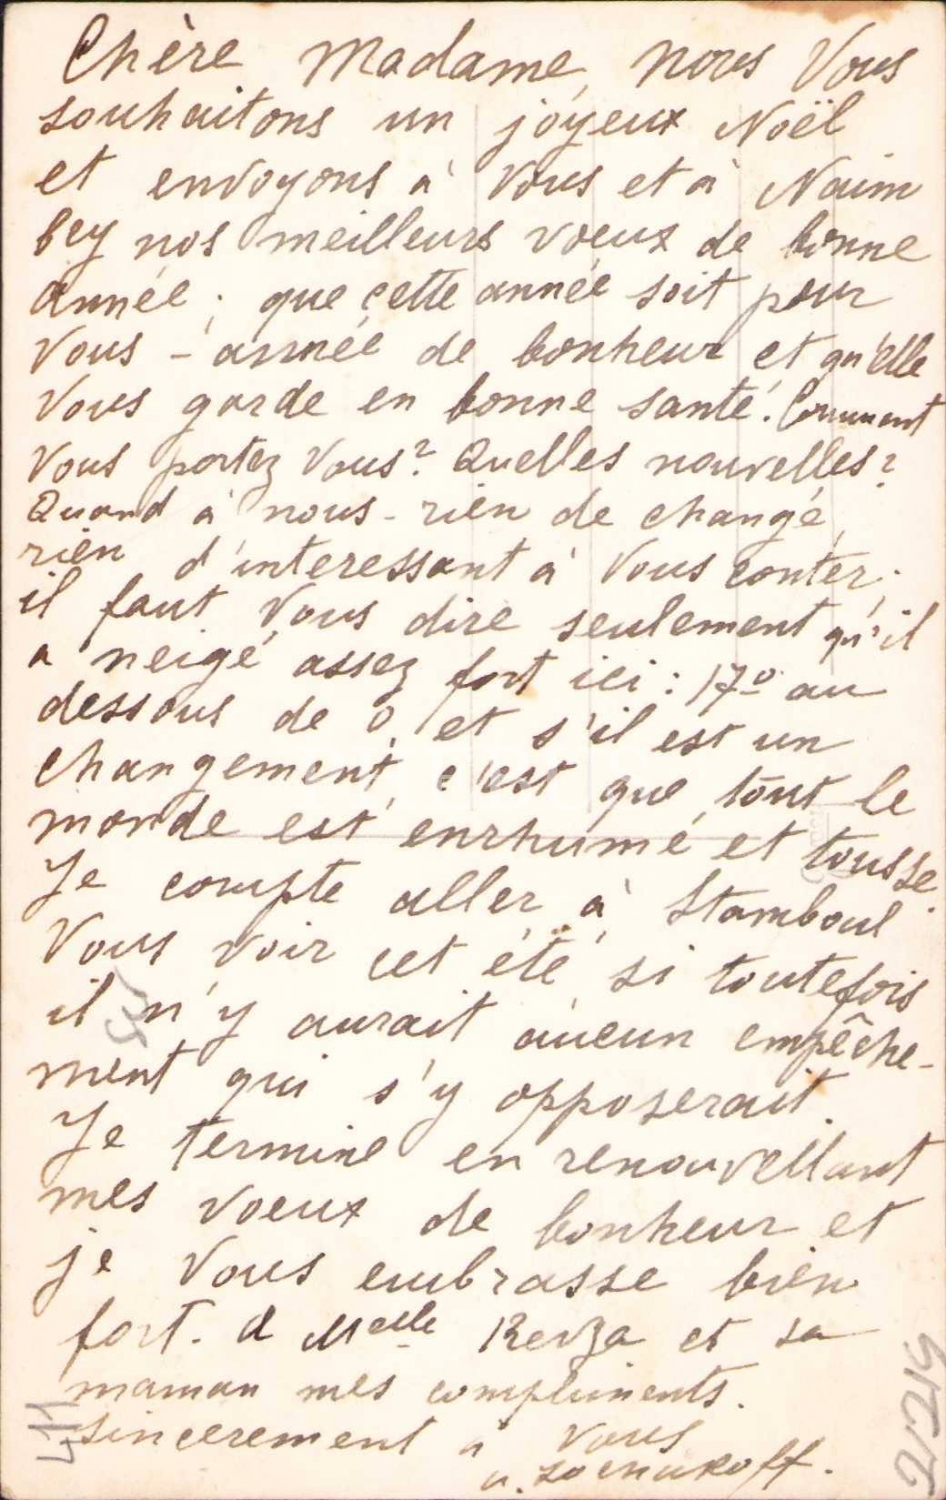 Chère Madame, nous Vous
souhaitons un joyeux Noël
et envoyons à Vous et à Naim
bey nos meilleurs voeux de bonne
année; que cette année soit pour
Vous - année de bonheur et qu'elle
Vous garde en bonne santé. Comment
Vous portez Vous? Quelles nouvelles?
Quand à nous - rien de changé,
rien d'interessant à Vous conter;
il faut Vous dire seulement qu'il
a neigé assez fort ici: 17° au
dessous de 0, et s'il est un
changement, c'est que tout le
monde est enrhumé et tousse.
Je compte aller à Stamboul
Vous voir cet été, si toutefois
il n'y aurait aucun empêche-
ment qui s'y opposerait.
Je termine en renouvellant
mes voeux de bonheur et
je Vous embrasse bien
fort. à Melle et sa
maman mes compliments.
Sincerement à Vous
411
21219